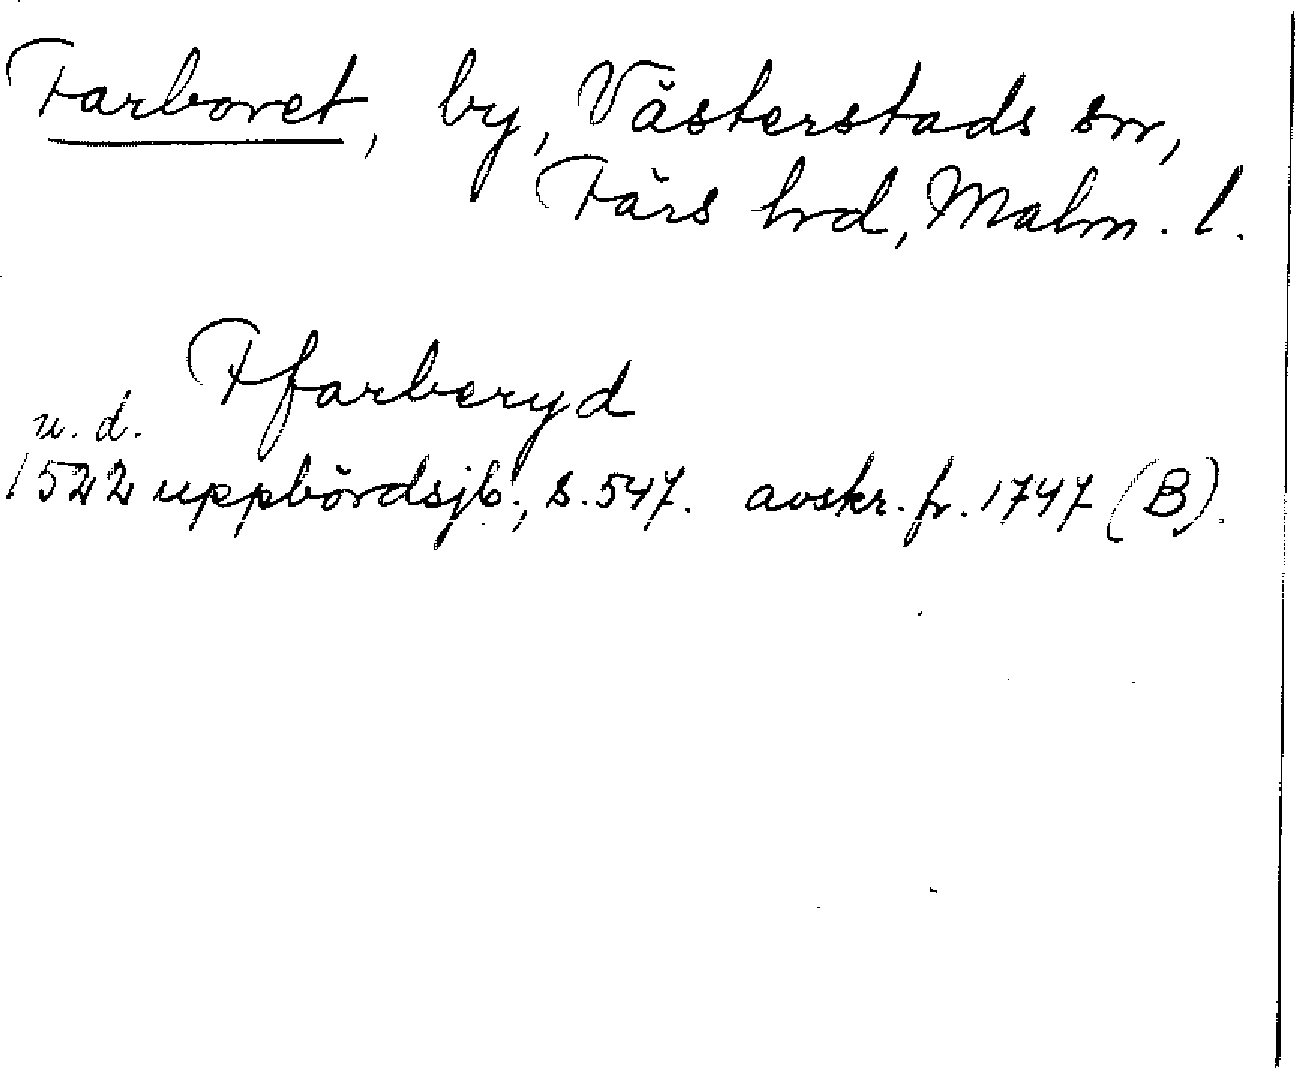 Farboret, by, Västerstads sn,
Färs hrd, Malm. l.
Ffarberyd
u. d.
1522 uppbördsjb., s. 547. avskr. fr. 1747 (B).